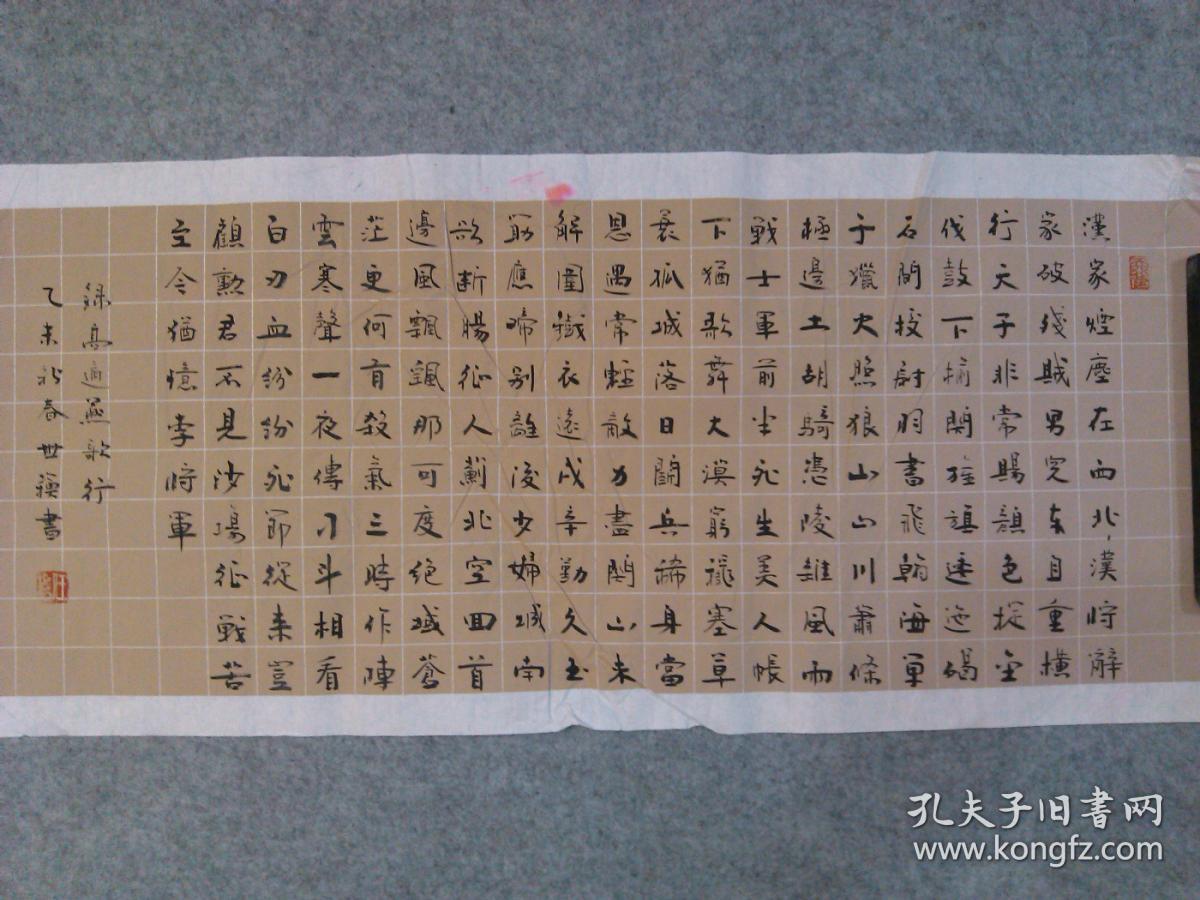 漢家煙塵在西北漢將辭
家破殘賊男兒本自重橫
行天子非常賜顏色摐金
伐鼓下榆關旌旗逶迤碣
石間校尉羽書飛翰海單
于獵火照狼山山川蕭條
極邊土胡騎憑陵雜風雨
戰士軍前半死生美人帳
下猶歌舞大漠窮塞草
衰孤城落日鬭兵稀身當
恩遇常輕敵力盡關山未
解圍鐵衣遠戍辛勤久玉
筯應啼別離後少婦城南
欲斷腸征人薊北空回首
邊風飄颻那可度絕域蒼
茫更何有殺氣三時作陣
雲寒聲一夜傳刁斗相看
白刃血紛紛死節從來豈
顧勳君不見沙場征戰苦
至今猶憶李將軍
錄高適燕歌行
乙未新春世書
孔夫子旧書网
www.kongfz.com